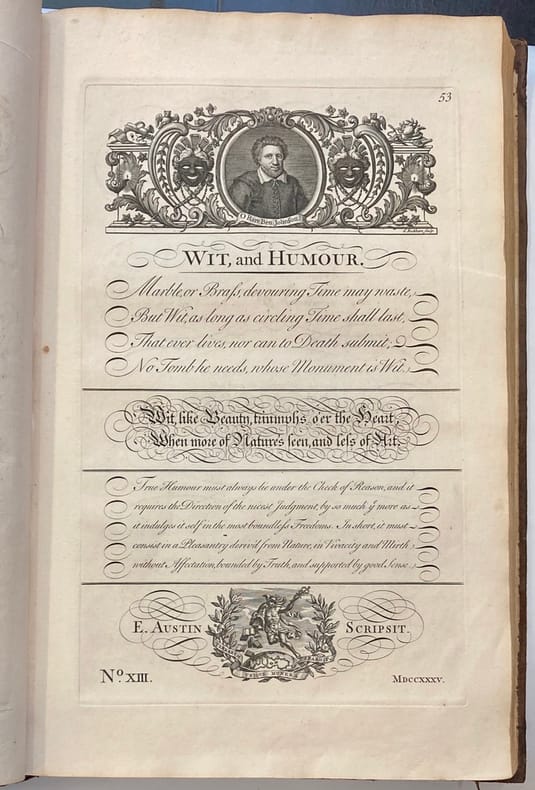 53
O Rare Ben Johnson
WIT, and HUMOUR.
Marble, or Braſs, devouring Time may waste,
But Wit, as long as circling Time shall last,
That ever lives, nor can to Death submit,
No Tomb he needs, whose Monument is Wit.
Wit, like Beauty, triumphs o'er the Heart,
When more of Nature's seen, and leſs of Art.
True Humour must always lie under the Check of Reason, and it
requires the Direction of the nicest Judgment, by so much yͤ more as
it indulges it self in the most boundleſs Freedoms. In short, it must
consist in a Pleasantry deriv'd from Nature, in Vivacity and Mirth
without Affectation, bounded by Truth, and supported by good Sense.
E. AUSTIN SCRIPSIT.
No. XIII. MDCCXXXV.